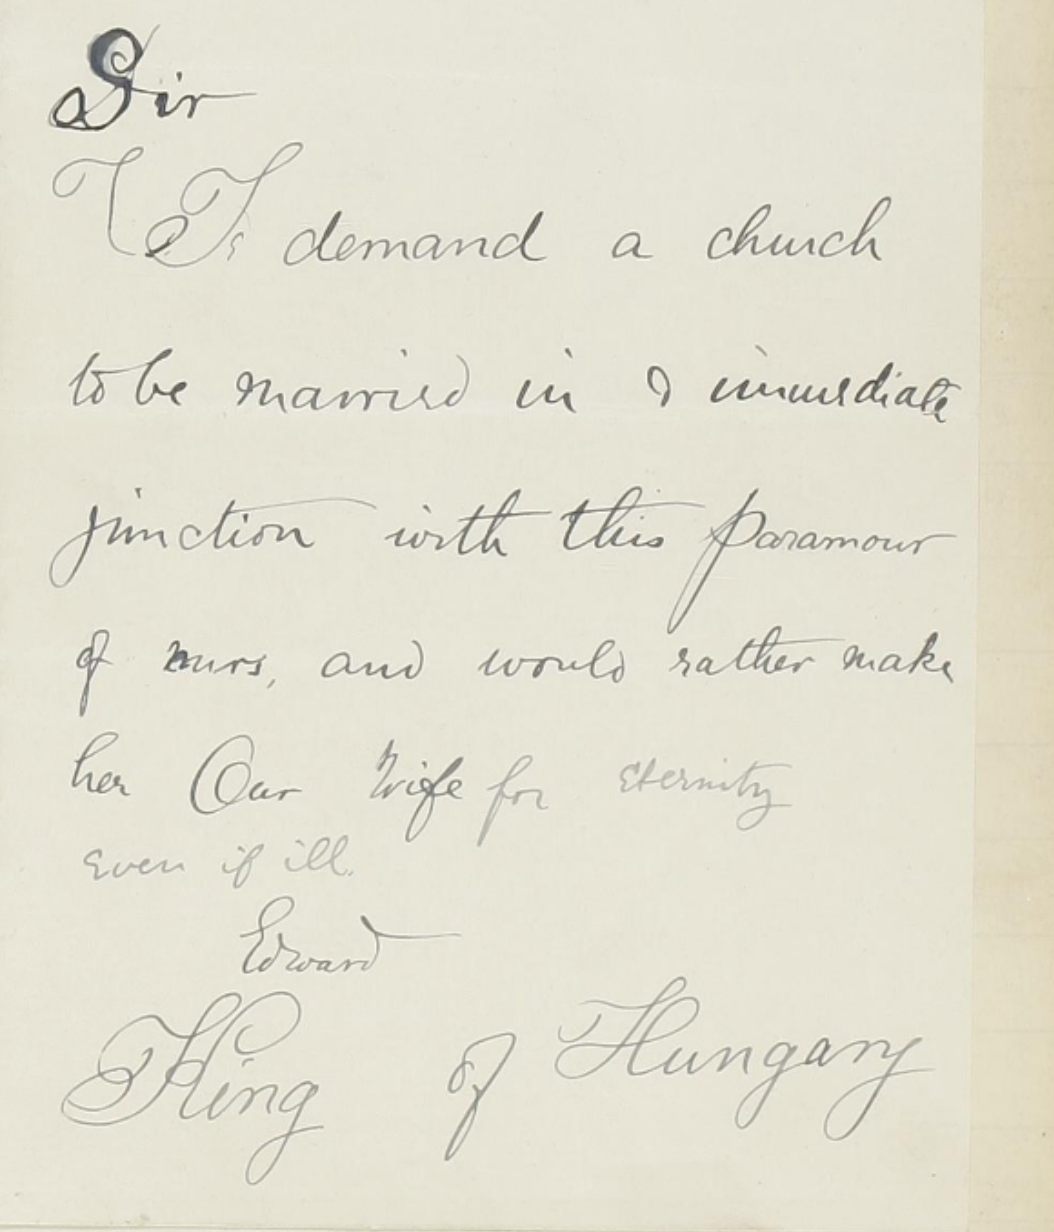 Sir
demand a church
to be married in & immediate
junction with this paramour
of ours, and would rather make
her Our Wife for Eternity
Even if ill.
Edward
King of Hungary